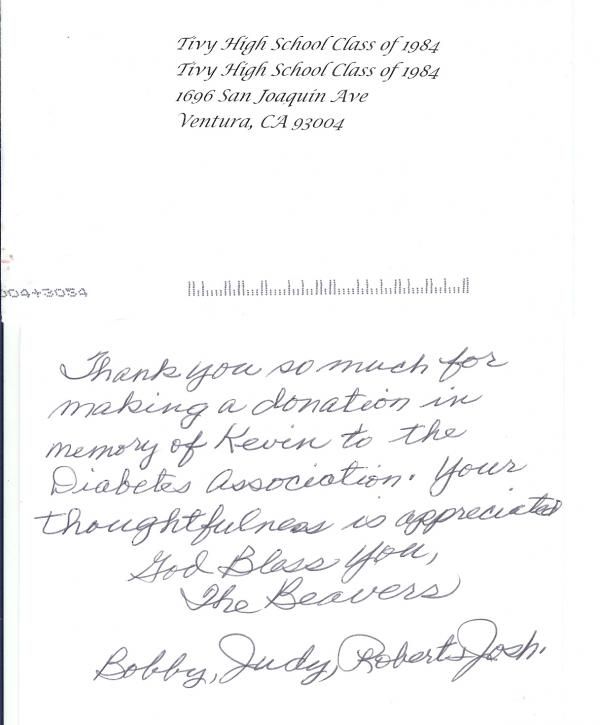 Tivy High School Class of 1984
Tivy High School Class of 1984
1696 San Joaquin Ave
Ventura, CA 93004
004+3054
Thank you so much for
making a donation in
memory of Kevin to the
Diabetes Association. Your
thoughtfulness is appreciated
God Bless You,
The Beavers
Bobby, Judy, Robert & Josh.